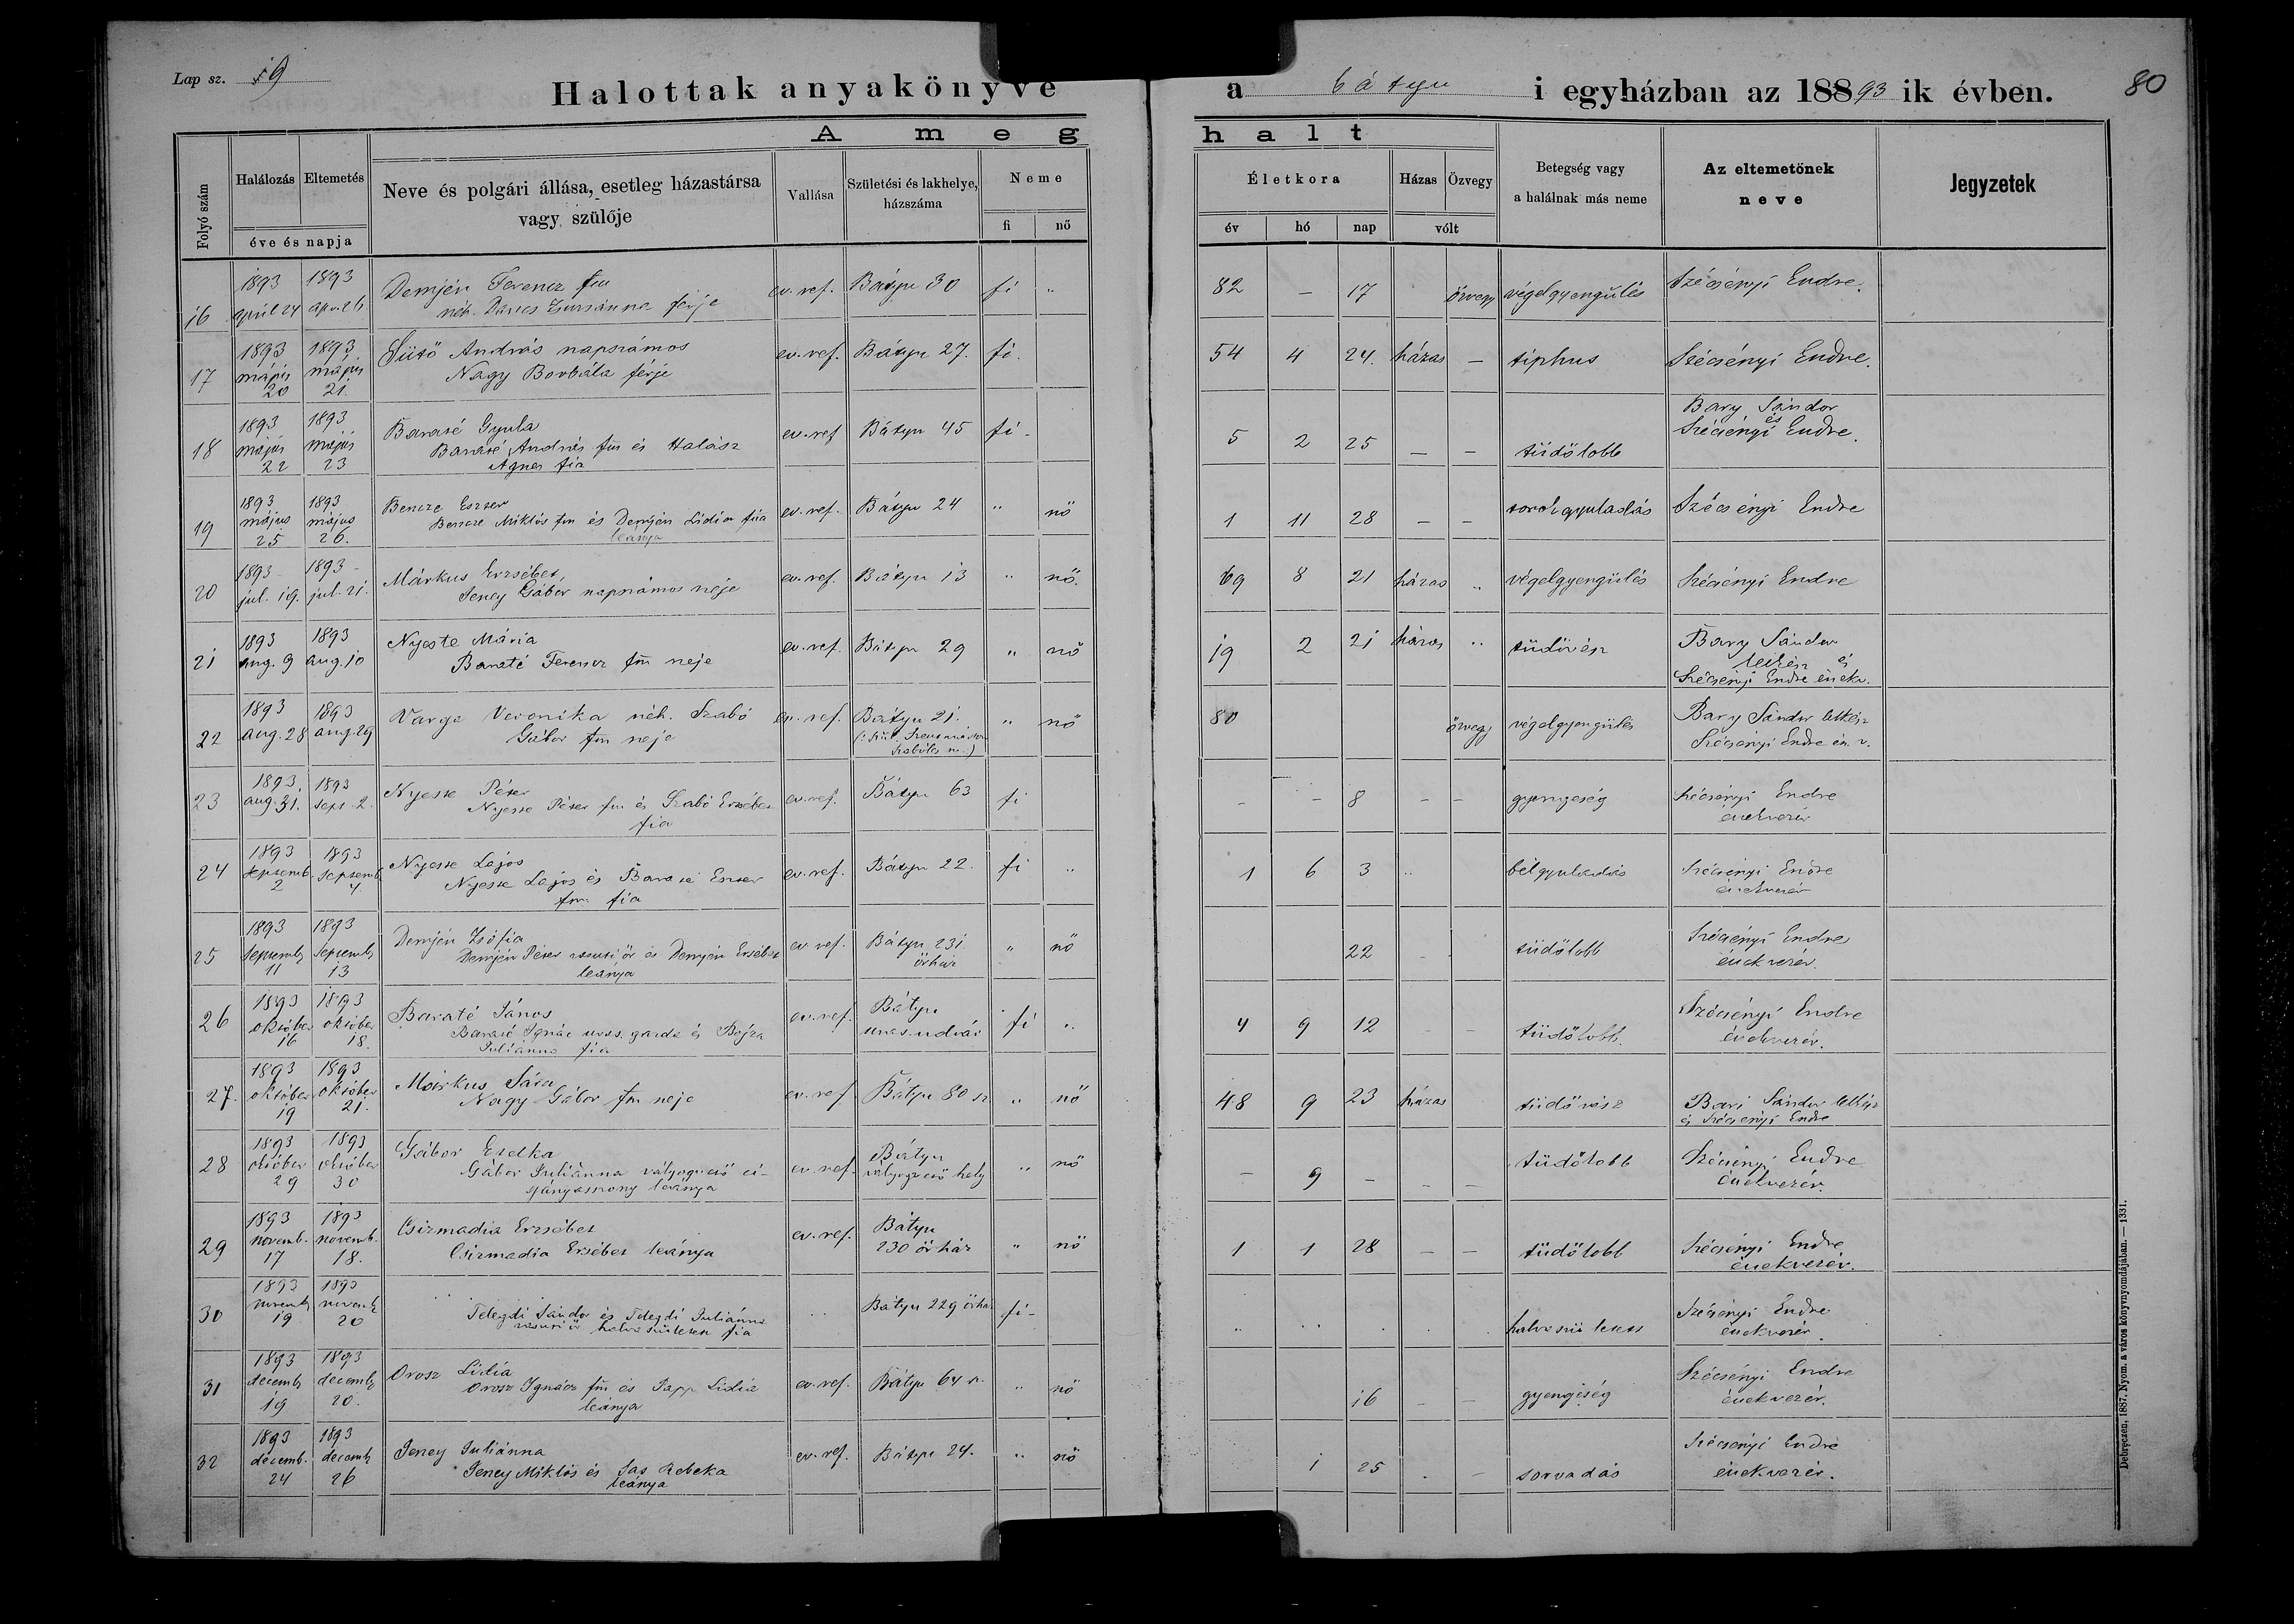 Lap sz. 19
Halottak anyakönyve a bátyu i egyházban az 18893 ik évben.
80
A meghalt
Folyó szám
Halálozás Eltemetés
éve és napja
Neve és polgári állása, esetleg házastársa
vagy szülője
Vallása
Születési és lakhelye,
házszáma
Neme
fi nő
Életkora
év hó nap
Házas Özvegy
vólt
Betegség vagy
a halálnak más neme
Az eltemetőnek
neve
Jegyzetek
16 1893 april 24 1893 april 26
Demjén Ferencz fm
néh. Zsuzsánna férje
ev. ref. Bátyu 30 fi "
82 – 17 özvegy végelgyengülés Szécsényi Endre.
17 1893 május 20 1893 május 21.
Sütő András napszámos
Nagy Borbála férje
ev. ref. Bátyu 27. fi.
54 4 24. házas – tiphus Szécsényi Endre.
18 1893 május 22 1893 május 23
Baraté Gyula
Baraté András fm és Halász
Ágnes fia
ev. ref Bátyu 45 fi -
5 2 25 – – tüdőlobb
Bary Sándor
és
Szécsényi Endre.
19 1893 május 25 1893 május 26.
Bencze Eszter
Bencze Miklós fm és Demjén Lidia fia
leánya
ev. ref. Bátyu 24 " nő
1 11 28 – – torokgyuladás Szécsényi Endre
20 1893 jul. 19. 1893 jul. 21.
Márkus Erzsébet,
Jeney Gábor napszámos neje
ev. ref. Bátyu 13 " nő.
69 8 21 házas " végelgyengülés Szécsényi Endre
21 1893 aug. 9 1893 aug. 10
Nyeste Mária
Baraté Ferencz fm neje
ev. ref. Bátyu 29 " nő
19 2 21 házas " tüdővész
Bary Sándor
lelkész és
Szécsényi Endre énekv.
22 1893 aug. 28 1893 aug. 29
Varga Veronika néh. Szabó
Gábor fm neje
ev. ref. Bátyu 21. " nő
80 özvegy végelgyengülés
Bary Sándor lelkész
Szécsényi Endre én. v.
23 1893. aug. 31. 1893 sept. 2.
Nyeste Péter
Nyeste Péter fm és Szabó Erzsébet
fia
ev. ref. Bátyu 63 fi
– – 8 – – gyengeség
Szécsényi Endre
énekvezér
24 1893 septemb. 2 1893 septemb 4
Nyeste Lajos
Nyeste Lajos és Baraté Eszter
fm fia
ev. ref. Bátyu 22. fi "
1 6 3 " bélgyuladás
Szécsényi Endre
énekvezér
25 1893 septemb 11 1893 septemb 13
Demjén Zsófia
Demjén Péter vasuti őr és Demjén Erzsébet
leánya
ev. ref. Bátyu 231
őrház " nő
22 tüdőlobb
Szécsényi Endre
énekvezér.
26 1893 október 16 1893 október 18.
Baraté János
Baraté Ignác uras. garda és Bojza
Juliánna fia
ev. ref. Bátyu
uras. udvar fi "
4 9 12 – tüdőlobb.
Szécsényi Endre
énekvezér.
27. 1893 október 19 1893 október 21.
Márkus Sára
Nagy Gábor fm neje
ev. ref Bátyu 80 sz " nő
48 9 23 házas tüdővész
Bari Sándor lelkész
és Szécsényi Endre
28 1893 október 29 1893 október 30
Gábor Etelka
Gábor Juliánna vályogvető ci-
gányasszony leánya
ev. ref. Bátyu
vályogvető hely " nő
– 9 – – – tüdőlobb
Szécsényi Endre
énekvezér.
29 1893 novemb. 17 1893 novemb. 18.
Csizmadia Erzsébet
Csizmadia Erzsébet leánya
ev. ref. Bátyu
230 őrház " nő
1 1 28 – – tüdőlobb
Szécsényi Endre
énekvezér.
30 1893 novemb 19 1893 novemb 20
Telegdi Sándor és Telegdi Juliánna
vasuti őr halva született fia
Bátyu 229 őrház fi -
halva született
Szécsényi Endre
énekvezér.
31 1893 decemb 19 1893 decemb 20.
Orosz Lidia
Orosz Ignácz fm és Papp Lidia
leánya
ev. ref. Bátyu 64 sz. " nő
16 – – gyengeség
Szécsényi Endre
énekvezér.
32 1893 decemb. 24 1893 decemb 26
Jeney Juliánna
Jeney Miklós és Sas Rebeka
leánya
ev. ref. Bátyu 24. " nő
1 25 . – sorvadás
Szécsényi Endre
énekvezér.
Debreczen, 1887. Nyom. a város könyvnyomdájában. — 1331.